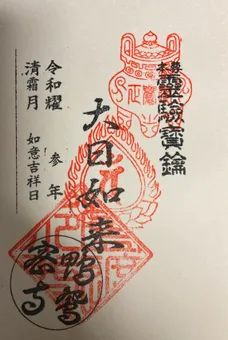 本尊
靈驗寶鑰
大日如来
令和耀 参年
清霜月 如意吉祥日
密寺